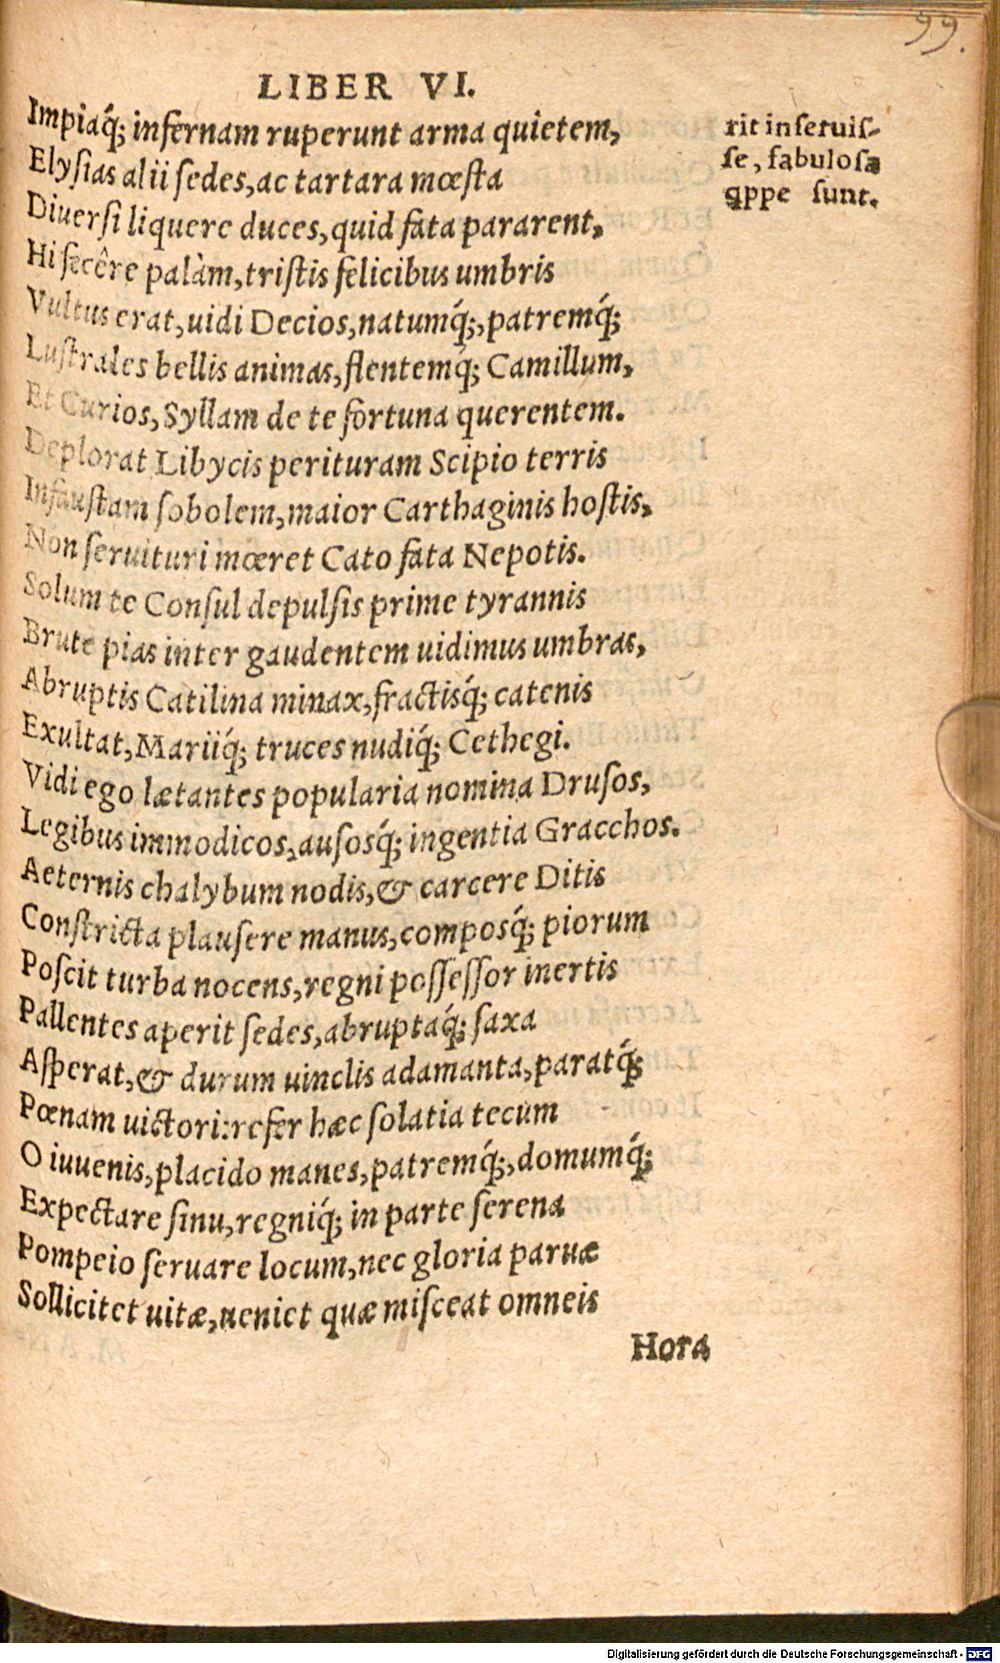 99.
LIBER VI.
Impiaq́; infernam ruperunt arma quietem,
Elysias alii sedes, ac tartara mœsta
Diuersi liquere duces, quid fata pararent,
Hi fecêre palàm, tristis felicibus umbris
Vultus erat, uidi Decios, natumq́;, patremq́;
Lustrales bellis animas, flentemq́; Camillum,
Et Curios, Syllam de te fortuna querentem.
Deplorat Libycis perituram Scipio terris
Infaustam sobolem, maior Carthaginis hostis,
Non seruituri mœret Cato fata Nepotis.
Solum te Consul depulsis prime tyrannis
Brute pias inter gaudentem uidimus umbras,
Abruptis Catilina minax, fractisq́; catenis
Exultat, Mariiq́; truces nudiq́; Cethegi.
Vidi ego lætantes popularia nomina Drusos,
Legibus immodicos, ausosq́; ingentia Gracchos.
Aeternis chalybum nodis, & carcere Ditis
Constricta plausere manus, composq́; piorum
Poscit turba nocens, regni possessor inertis
Pallentes aperit sedes, abruptaq́; saxa
Asperat, & durum uinclis adamanta, paratq́;
Pœnam uictori: refer hæc solatia tecum
O iuuenis, placido manes, patremq́;, domumq́;
Expectare sinu, regniq́; in parte serena
Pompeio seruare locum, nec gloria paruæ
Sollicitet uitæ, ueniet quæ misceat omneis
Hora
rit inseruis-
se, fabulosa
qppe sunt.
Digitalisierung gefördert durch die Deutsche Forschungsgemeinschaft - DFG